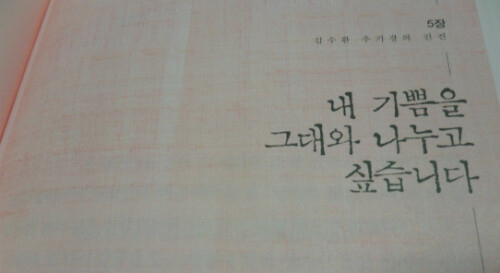 5장
김수환 추기경의 친전
내 기쁨을
그대와 나누고
싶습니다